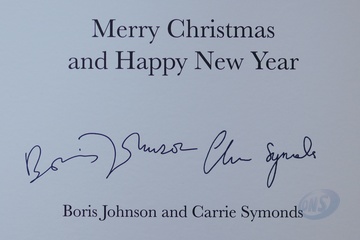 Merry Christmas
and Happy New Year
Boris Johnson
Boris Johnson and Carrie Symonds